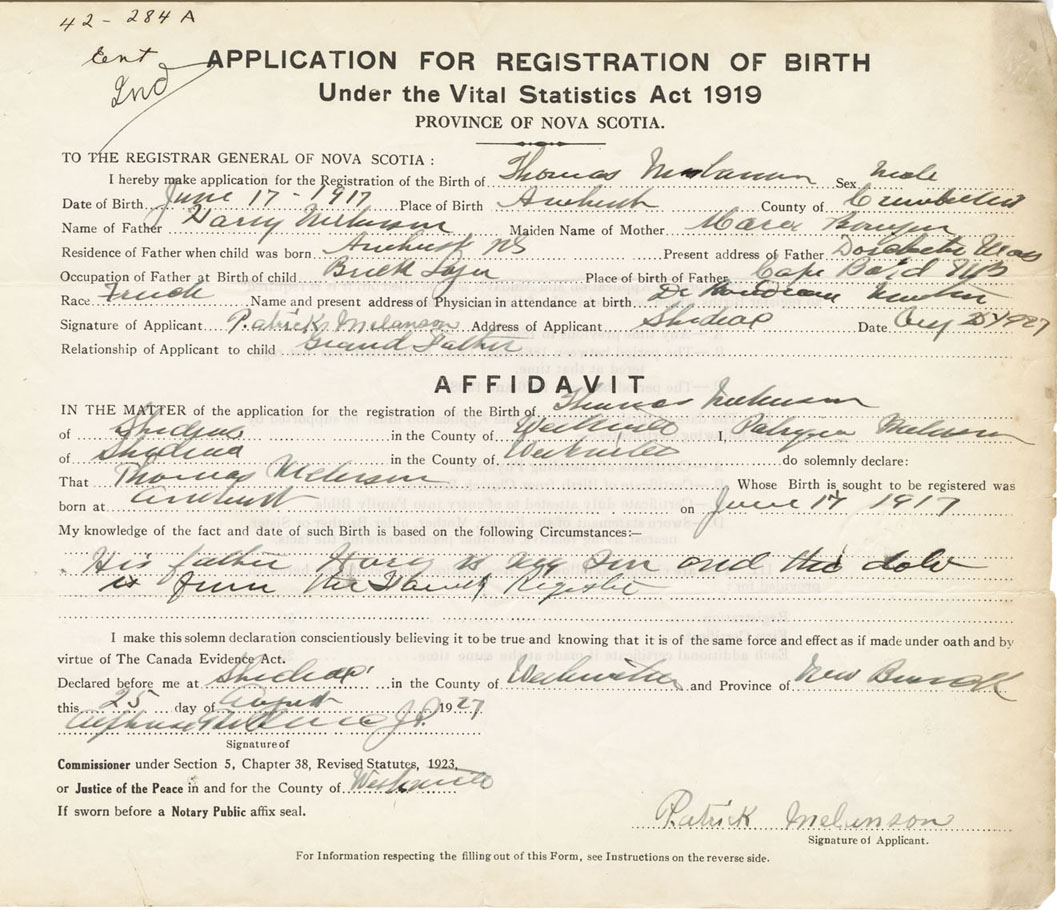 42 - 284 A
Ent
Ind
APPLICATION FOR REGISTRATION OF BIRTH
Under the Vital Statistics Act 1919
PROVINCE OF NOVA SCOTIA.
TO THE REGISTRAR GENERAL OF NOVA SCOTIA :
I hereby make application for the Registration of the Birth of Thomas Melanson Sex Male
Date of Birth June 17 - 1917 Place of Birth Amherst County of Cumberland
Name of Father Harry Melanson Maiden Name of Mother
Residence of Father when child was born Amherst NS Present address of Father Mass
Occupation of Father at Birth of child Brick Layer Place of birth of Father Cape Bald NB
Race French Name and present address of Physician in attendance at birth Dr
Signature of Applicant Patrick Melanson Address of Applicant Shediac Date Aug 25 1927
Relationship of Applicant to child Grand Father
AFFIDAVIT
IN THE MATTER of the application for the registration of the Birth of Thomas Melanson
of Shediac in the County of Westmorland I, Melanson
of Shediac in the County of Westmorland do solemnly declare:
That Thomas Melanson Whose Birth is sought to be registered was
born at Amherst on June 17 1917
My knowledge of the fact and date of such Birth is based on the following Circumstances:—
His father Harry is my son and the date
is from the Family Register
I make this solemn declaration conscientiously believing it to be true and knowing that it is of the same force and effect as if made under oath and by
virtue of The Canada Evidence Act.
Declared before me at Shediac in the County of Westmorland and Province of New Brunswick
this 25 day of August 1927
J.P.
Signature of
Commissioner under Section 5, Chapter 38, Revised Statutes, 1923,
or Justice of the Peace in and for the County of Westmorland
If sworn before a Notary Public affix seal.
Patrick Melanson
Signature of Applicant.
For Information respecting the filling out of this Form, see Instructions on the reverse side.